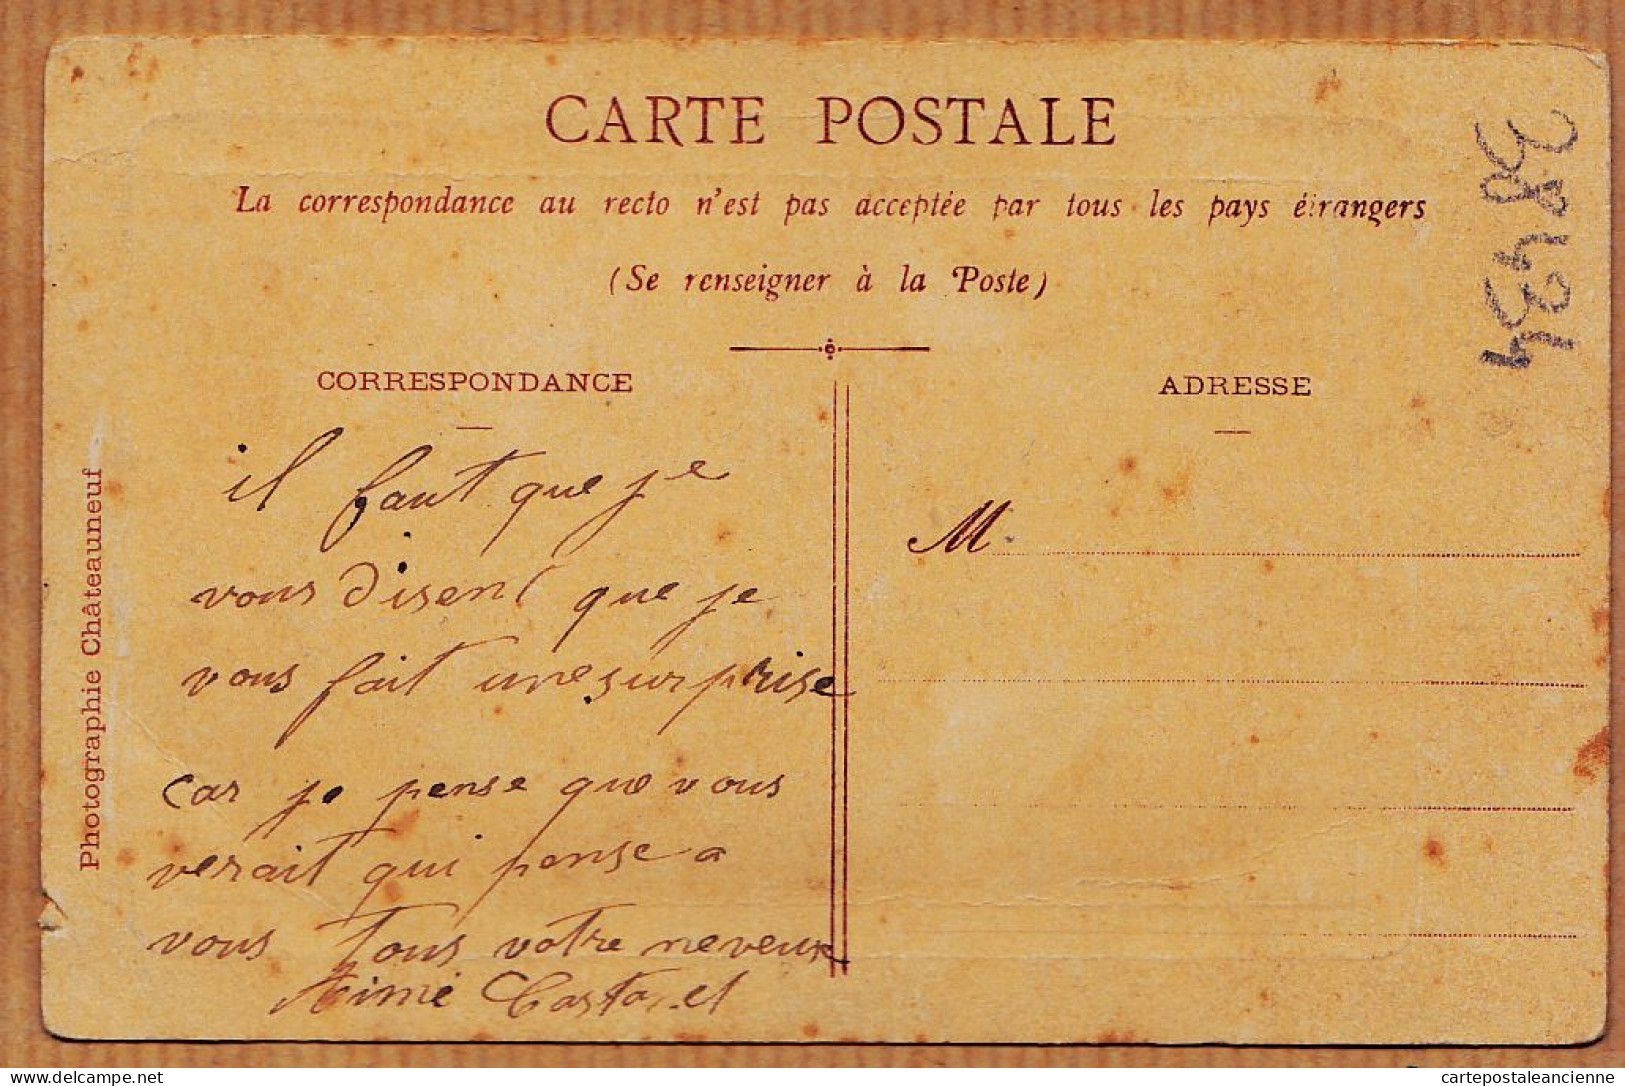 CARTE POSTALE
La correspondance au recto n'est pas acceptée par tous les pays étrangers
(Se renseigner à la Poste)
CORRESPONDANCE
il faut que je
vous disent que je
vous fait une surprise
car je pense que vous
verait qui pense a
vous tous votre neveux
Aimé
ADRESSE
M.
Photographie Châteauneuf
delcampe.net
cartepostaleancienne